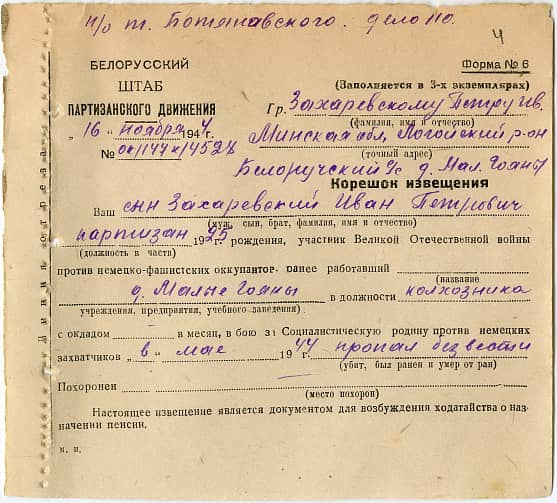 п/о т. Ботяновского. дело по.
4
БЕЛОРУССКИЙ
ШТАБ
ПАРТИЗАНСКОГО ДВИЖЕНИЯ
„16" ноября 1944 г.
№ ок/144к/14528
Форма № 6
(Заполняется в 3-х экземплярах)
Гр. Захаревскому Петру Ив.
(фамилия, имя и отчество)
Минская обл, Логойский р-он
(точный адрес)
Белоручский с/с д. Мал. Гояны
Корешок извещения
Ваш сын Захаревский Иван Петрович
(муж, сын, брат, фамилия, имя и отчество)
партизан 1925 рождения, участник Великой Отечественной войны
(должность в части)
против немецко-фашистских оккупантов ранее работавший
(название
д. Малые Гояны в должности колхозника
учреждения, предприятия, учебного заведения)
с окладом в месяц, в бою за Социалистическую родину против немецких
захватчиков „в мае 1944 пропал безвести
(убит, был ранен и умер от ран)
Похоронен
(место похорон)
Настоящее извещение является документом для возбуждения ходатайства о наз-
начении пенсии.
М. П.
Линия отреза